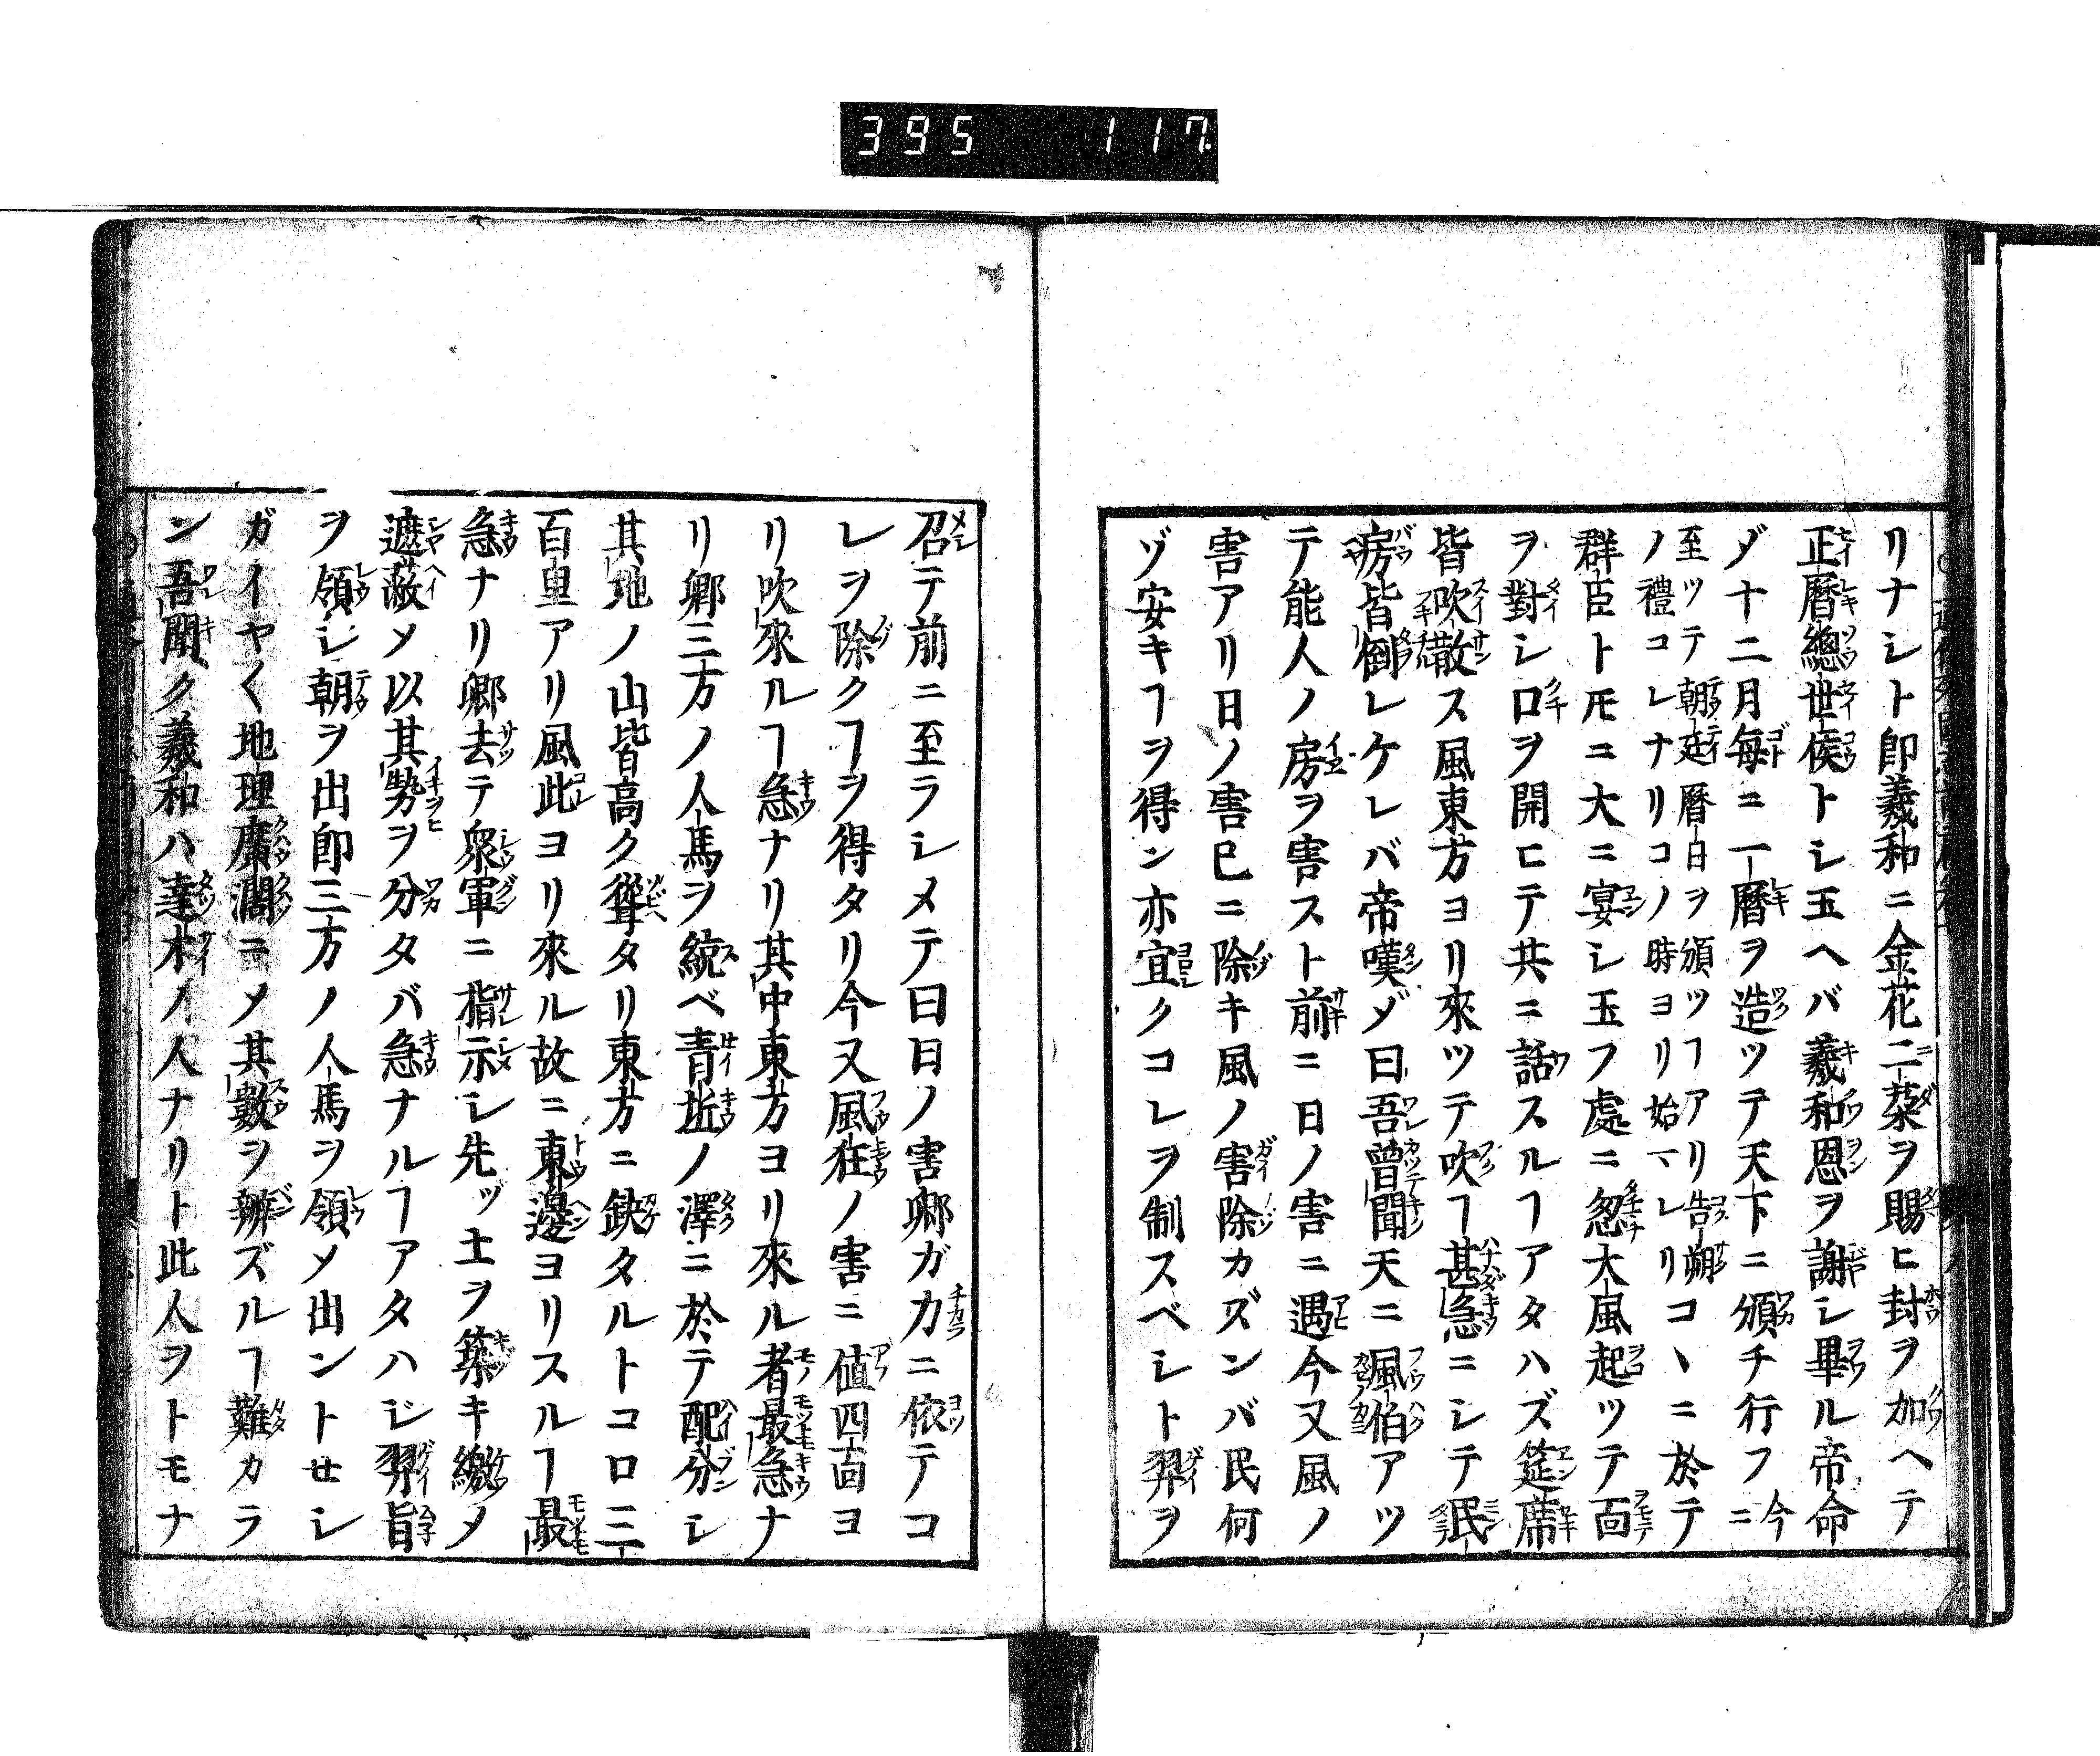 395 117
リナシト即羲和ニ金花二蘂ヲ賜ヒ封ヲ加ヘテ
正曆總世侯トシ玉ヘバ羲和恩ヲ謝シ畢ル帝命
ゾ十二月每ニ一曆ヲ造ツテ天下ニ頒チ行フニ今
至ツテ朝廷曆日ヲ頒ツヿアリ告朔
ノ禮コレナリコノ時ヨリ始マレリコヽニ於テ
群臣トモニ大ニ宴シ玉フ處ニ忽大風起ツテ面
ヲ對シ口ヲ開ヒテ共ニ話スルヿアタハズ筵席
皆吹散ス風東方ヨリ來ツテ吹ヿ甚急ニシテ民
房皆倒レケレバ帝嘆ゾ曰吾曾聞天ニ風伯アツ
テ能人ノ房ヲ害スト前ニ日ノ害ニ遇今又風ノ
害アリ日ノ害已ニ除キ風ノ害除カズンバ民何
ヅ安キヿヲ得ン亦宜クコレヲ制スベシト羿ヲ
召テ前ニ至ラシメテ曰日ノ害卿ガ力ニ依テコ
レヲ除クヿヲ得タリ今又風狂ノ害ニ値四面ヨ
リ吹來ルヿ急ナリ其中東方ヨリ來ル者最急ナ
リ卿三方ノ人馬ヲ統ベ青丘ノ澤ニ於テ配分シ
其地ノ山皆高ク聳タリ東方ニ缺タルトコロ三
百里アリ風此ヨリ來ル故ニ東邊ヨリスルヿ最
急ナリ卿去テ衆軍ニ指示シ先ッ土ヲ築キ繳メ
遮蔽メ以其勢ヲ分タバ急ナルヿアタハジ羿旨
ヲ領シ朝ヲ出即三方ノ人馬ヲ領メ出ントセシ
ガイヤ〱地理廣濶ニメ其數ヲ辨ズルヿ難カラ
ン吾聞ク羲和ハ達才ノ人ナリト此人ヲトモナ